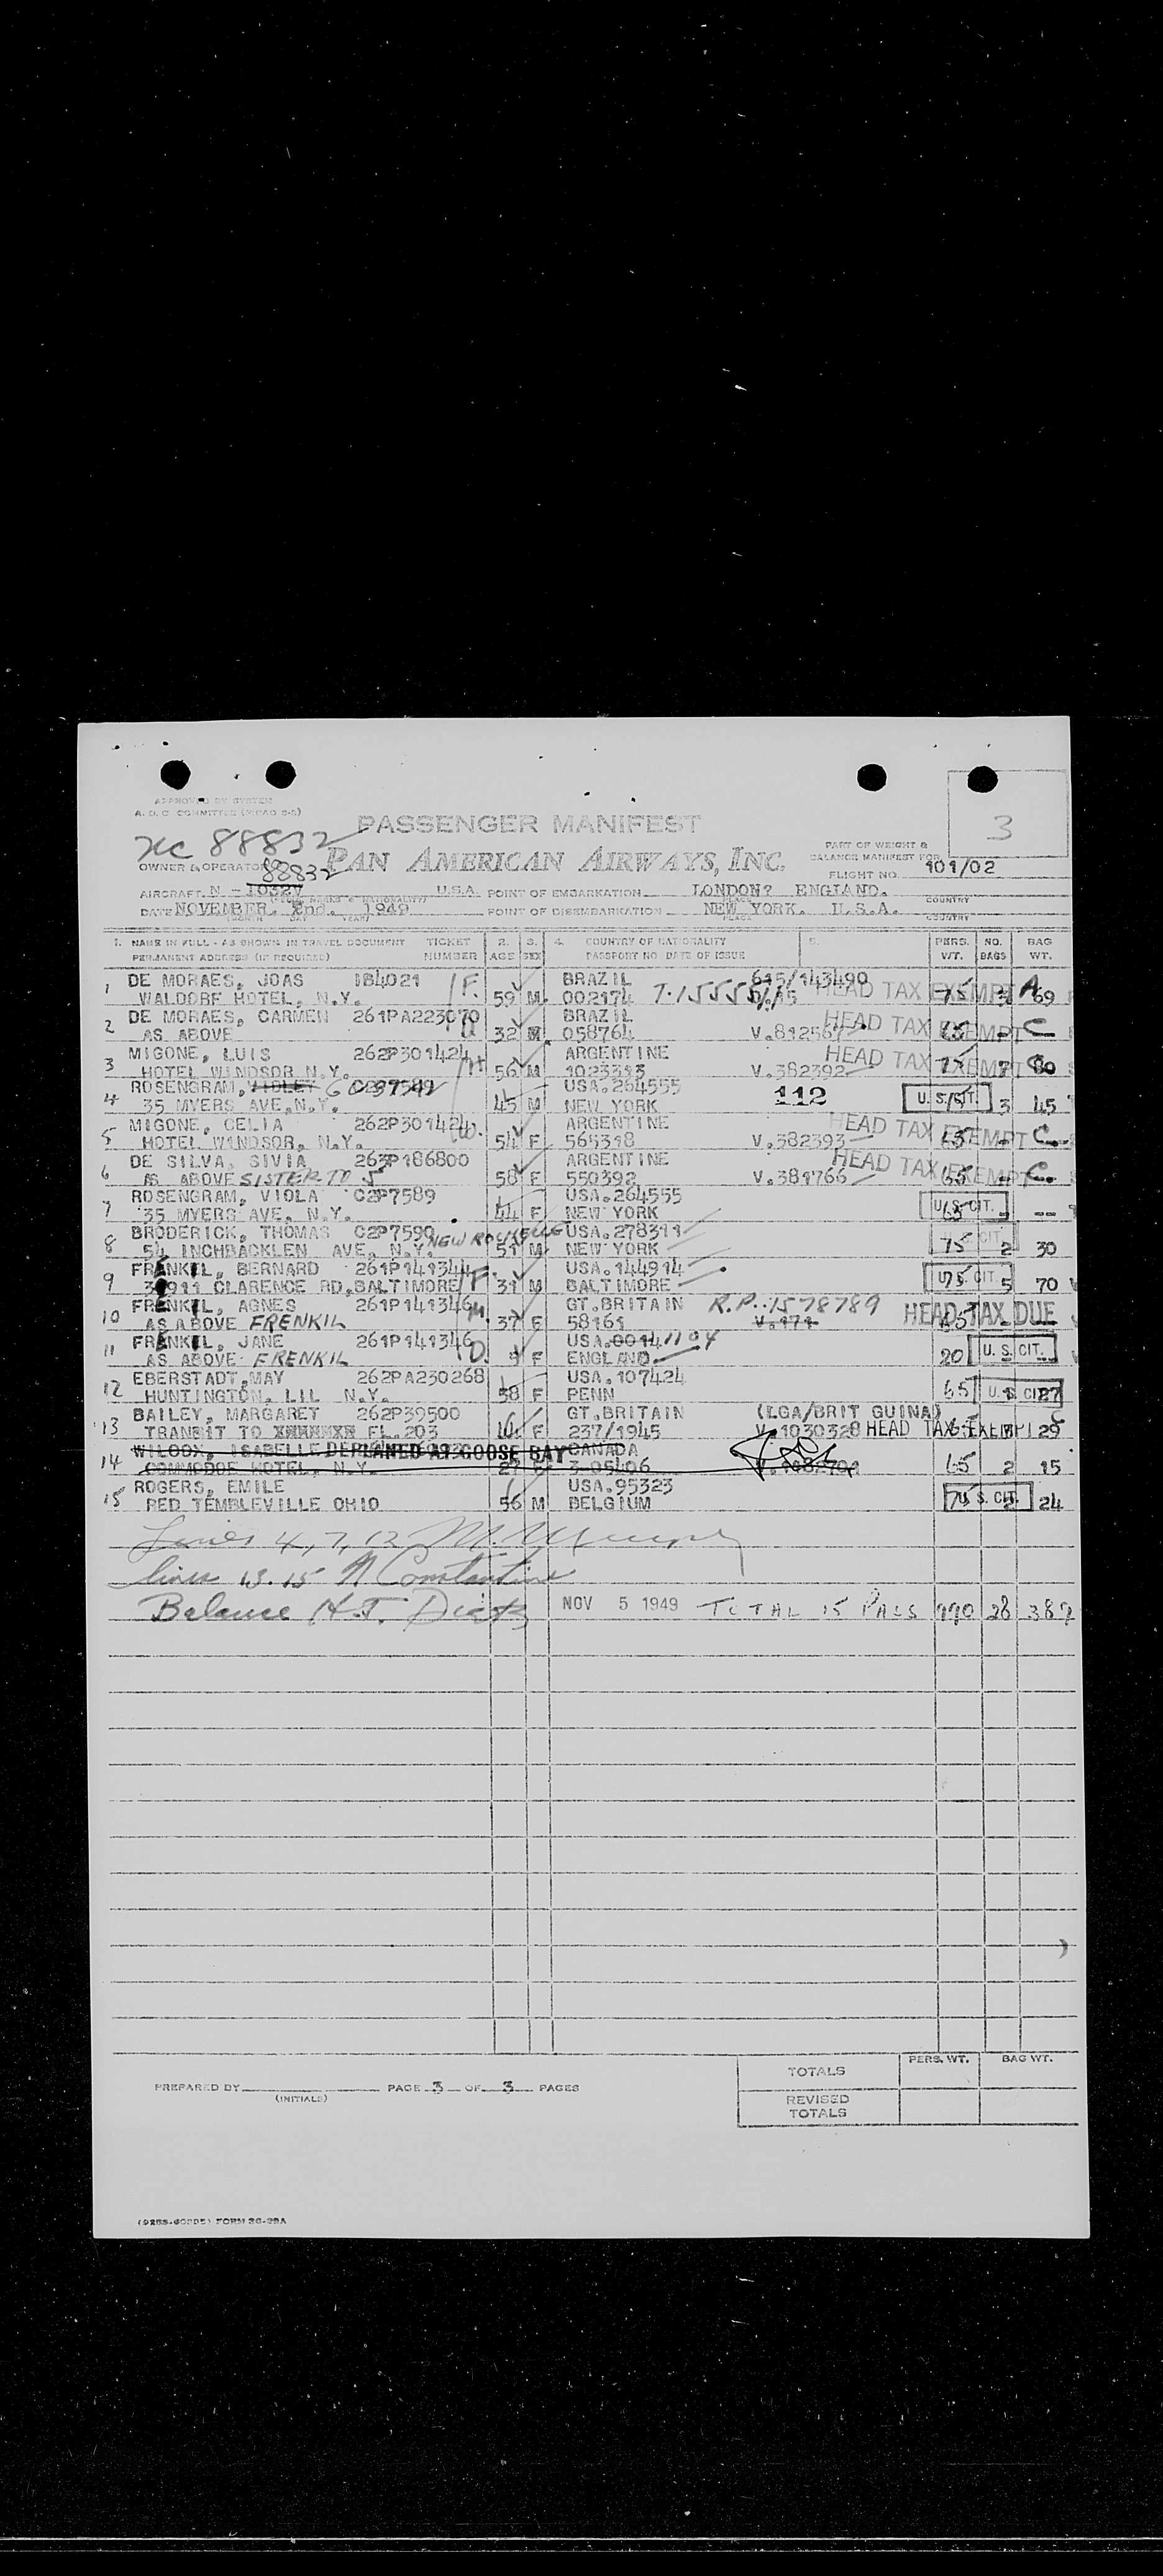 APPROVED BY SYSTEM
A. D. C. COMMITTEE
NC 88832
PASSENGER MANIFEST
3
OWNER & OPERATOR
88832
PAN AMERICAN AIRWAYS, INC.
PART OF WEIGHT &
BALANCE MANIFEST FOR
FLIGHT NO. 101/02
AIRCRAFT N - U.S.A. POINT OF EMBARKATION LONDON? ENGLAND.
DATE NOVEMBER. 2nd. 1949 POINT OF DISEMBARKATION NEW YORK. U.S.A.
MONTH DAY YEAR PLACE COUNTRY
1. NAME IN FULL - AS SHOWN IN TRAVEL DOCUMENT TICKET 2. 3. 4. COUNTRY OF NATIONALITY 5. PERS. NO. BAG
PERMANENT ADDRESS (IF REQUIRED) NUMBER AGE SEX PASSPORT NO. DATE OF ISSUE WT. BAGS WT.
1 DE MORAES, JOAS 1B4021 BRAZIL 615/143490
WALDORF HOTEL, N.Y. 59 M 002174 HEAD TAX EXEMPT 75 3 69
2 DE MORAES, CARMEN 261PA223070 BRAZIL
AS ABOVE 32 058764 HEAD TAX EXEMPT 65 - C
3 MIGONE, LUIS 262P301424 ARGENTINE
HOTEL WINDSOR N.Y. 56 M 1023313 V.382392 HEAD TAX EXEMPT 75 7 80
4 ROSENGRAM, G USA.264555
35 MYERS AVE,N.Y. 45 M NEW YORK 112 U. S. CIT. 3 45
5 MIGONE, CELIA 262P301424 ARGENTINE
HOTEL WINDSOR, N.Y. 54 F 565318 V.382393 HEAD TAX EXEMPT 65 - C
6 DE SILVA, SIVIA 263P186800 ARGENTINE
AS ABOVE SISTER TO 5 58 F 550392 V.381766 HEAD TAX EXEMPT 65 - C
7 ROSENGRAM, VIOLA C2P7589 USA.264555
35 MYERS AVE, N.Y. 44 F NEW YORK U. S. CIT. 65 - --
8 BRODERICK, THOMAS C2P7590 NEW ROCHELLE USA.278311
54 INCHBACKLEN AVE, N.Y. 51 M NEW YORK 75 CIT 2 30
9 FRENKIL, BERNARD 261P141344 F. USA.144914
CLARENCE RD,BALTIMORE 31 M BALTIMORE U. S. CIT. 75 5 70
10 FRENKIL, AGNES 261P141346 M. GT.BRITAIN R.P. 1578789
AS ABOVE FRENKIL 37 F 58161 V.171 HEAD TAX DUE
11 FRENKIL, JANE 261P141346 D. USA. 1104
AS ABOVE FRENKIL F ENGLAND 20 U. S. CIT.
12 EBERSTADT,MAY 262PA230268 USA.107424
HUNTINGTON, LIL N.Y. 58 F PENN 65 U. S. CIT. 27
13 BAILEY, MARGARET 262P39500 GT.BRITAIN (LGA/BRIT GUINA)
TRANSIT TO XXXXXXX FL.203 F 237/1945 V.1030328 HEAD TAX EXEMPT 29
14 WILCOX, ISABELLE DEPLANED AT GOOSE BAY CANADA
COMMODOE HOTEL, N.Y. 27 F 3-05406 65 2 15
15 ROGERS, EMILE USA.95323
RED TEMBLEVILLE OHIO 56 M BELGIUM 75 U. S. CIT. 24
Lines 4, 7, 12
lines 13. 15 Constantine
Balance H.J. Dietz NOV 5 1949 TOTAL 15 PALS 990 28 389
TOTALS PERS. WT. BAG WT.
PREPARED BY (INITIALS) PAGE 3 OF 3 PAGES
REVISED
TOTALS